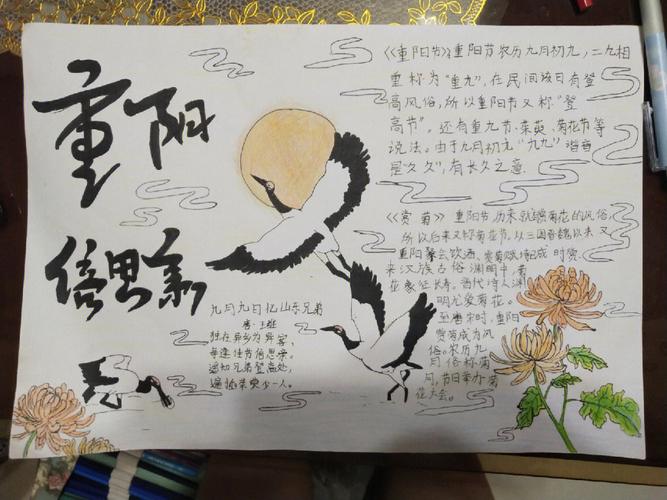 重阳
倍思亲
《重阳节》重阳节农历九月初九，二九相
重称为“重九”，在民间该日有登
高风俗，所以重阳节又称“登
高节”。还有重九节、茱萸、菊花节等
说法。由于九月初九“九九”谐音
是“久久”，有长久之意
《赏菊》重阳节历来就有赏菊花的风俗，
所以后来又称菊花节。从三国魏晋以来
重阳聚会饮酒、赏菊赋诗已成时尚。
在汉族古俗中，菊
花象征长寿。晋代诗人
陶渊明尤爱菊花。
至唐宋时，重阳
赏菊成为风
俗。农历九
月俗称菊
月，节日举办菊
花大会。
九月九日忆山东兄弟
唐·王维
独在异乡为异客，
每逢佳节倍思亲。
遥知兄弟登高处，
遍插茱萸少一人。